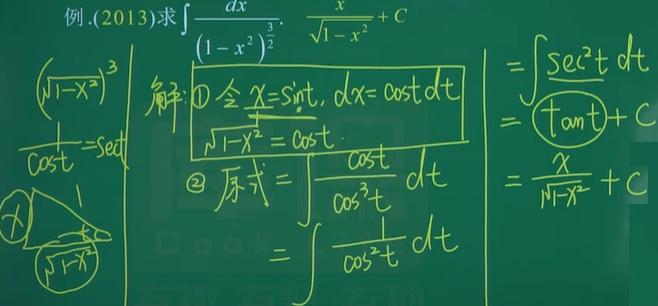 例.(2013)求∫ dx/(1-x²)^(3/2). x/√(1-x²) + C
(√(1-x²))³
1/cost = sect
x 1 t √(1-x²)
解:① 令 x=sint, dx=costdt
√(1-x²) = cost.
② 原式 = ∫ cost/cos³t dt
= ∫ 1/cos²t dt
= ∫ sec²t dt
= tant + C
= x/√(1-x²) + C